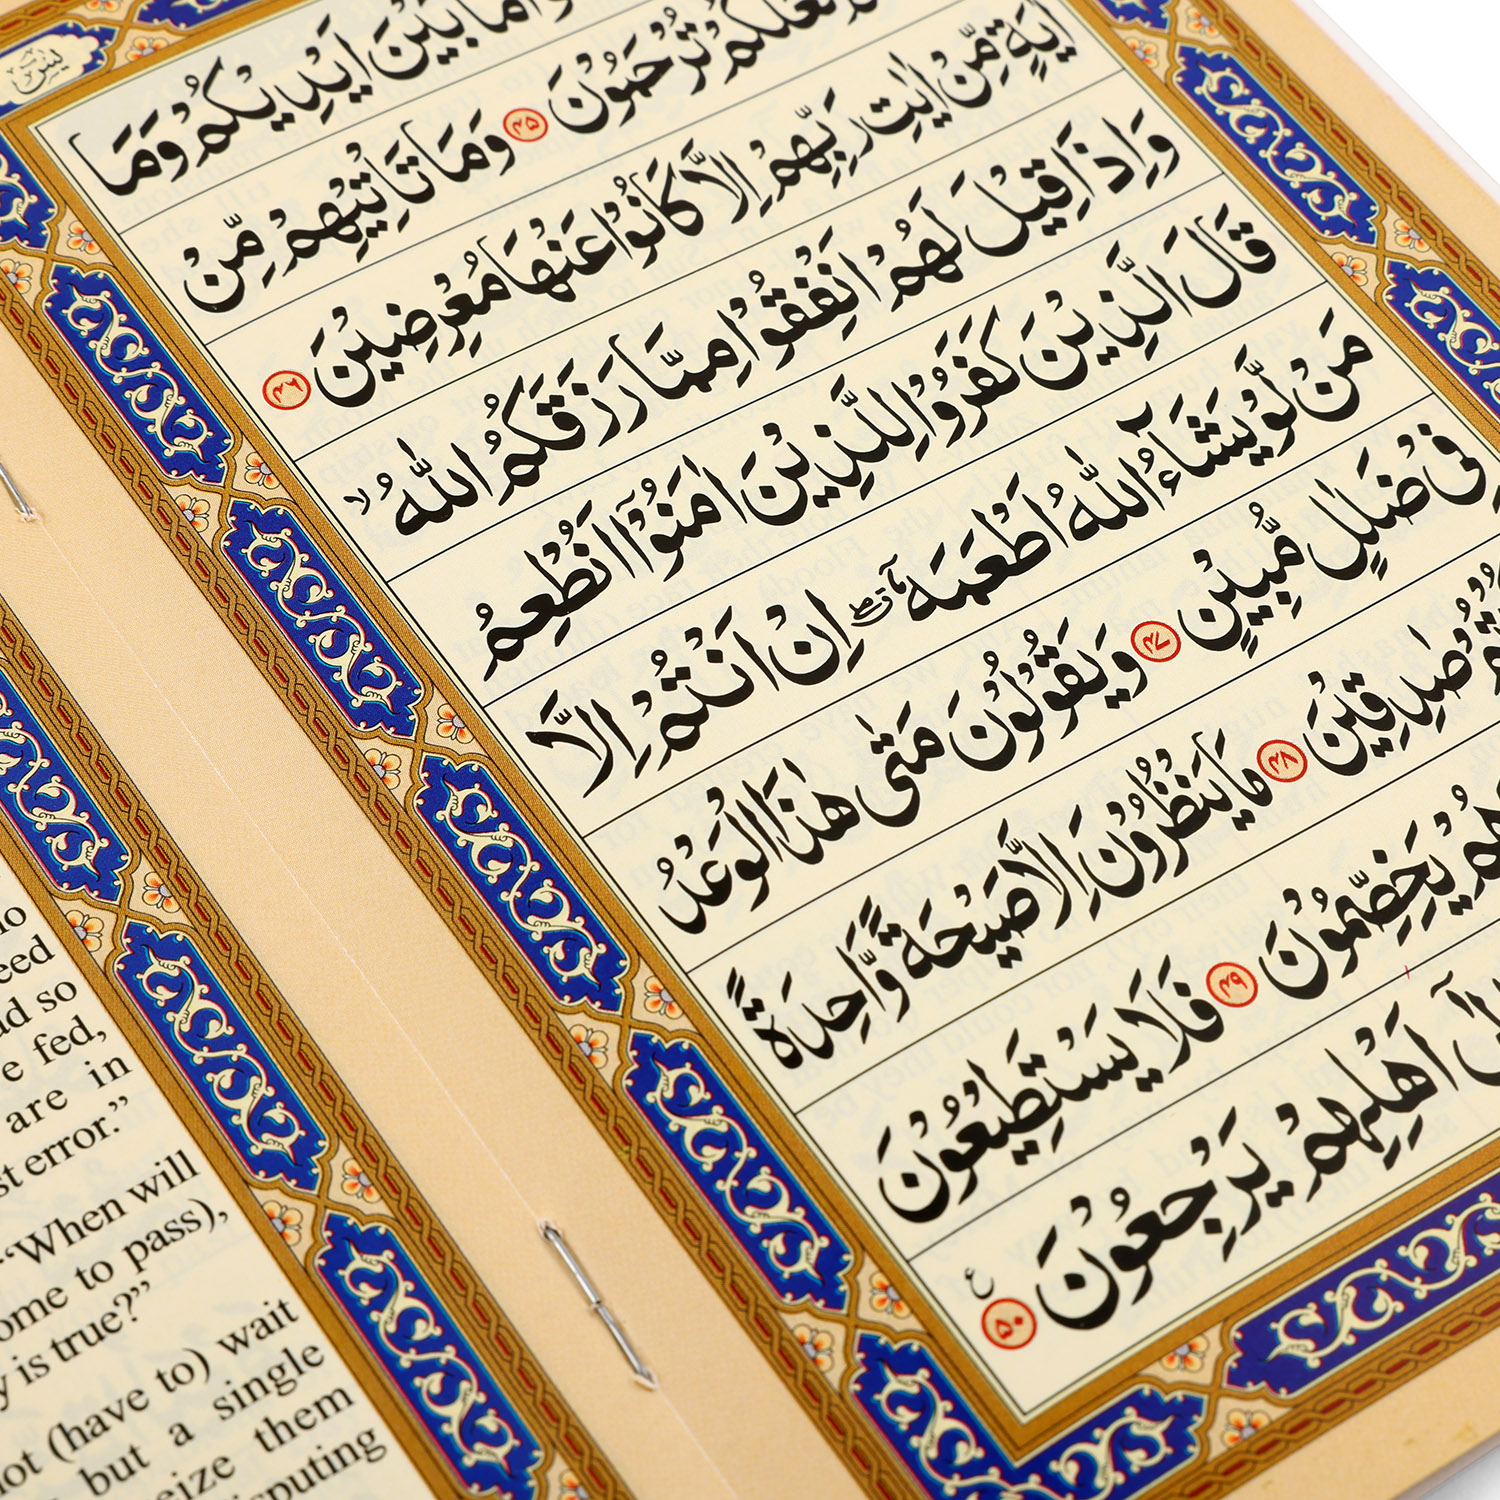 يٰسٓ
وَمَا بَيْنَ اَيْدِيْكُمْ وَمَا
لَعَلَّكُمْ تُرْحَمُوْنَ ﴿۴۵﴾ وَمَا تَاْتِيْهِمْ مِّنْ
اٰيَةٍ مِّنْ اٰيٰتِ رَبِّهِمْ اِلَّا كَانُوْا عَنْهَا مُعْرِضِيْنَ ﴿۴۶﴾
وَاِذَا قِيْلَ لَهُمْ اَنْفِقُوْا مِمَّا رَزَقَكُمُ اللّٰهُ ۙ
قَالَ الَّذِيْنَ كَفَرُوْا لِلَّذِيْنَ اٰمَنُوْٓا اَنُطْعِمُ
مَنْ لَّوْ يَشَآءُ اللّٰهُ اَطْعَمَهٗٓ ۖ اِنْ اَنْتُمْ اِلَّا
فِيْ ضَلٰلٍ مُّبِيْنٍ ﴿۴۷﴾ وَيَقُوْلُوْنَ مَتٰى هٰذَا الْوَعْدُ
صٰدِقِيْنَ ﴿۴۸﴾ مَا يَنْظُرُوْنَ اِلَّا صَيْحَةً وَّاحِدَةً
يَخِصِّمُوْنَ ﴿۴۹﴾ فَلَا يَسْتَطِيْعُوْنَ
اَهْلِهِمْ يَرْجِعُوْنَ ﴿۵۰﴾ ع
so
fed,
are in
error.”
“When will
to pass),
is true?”
(have to) wait
but a single
them